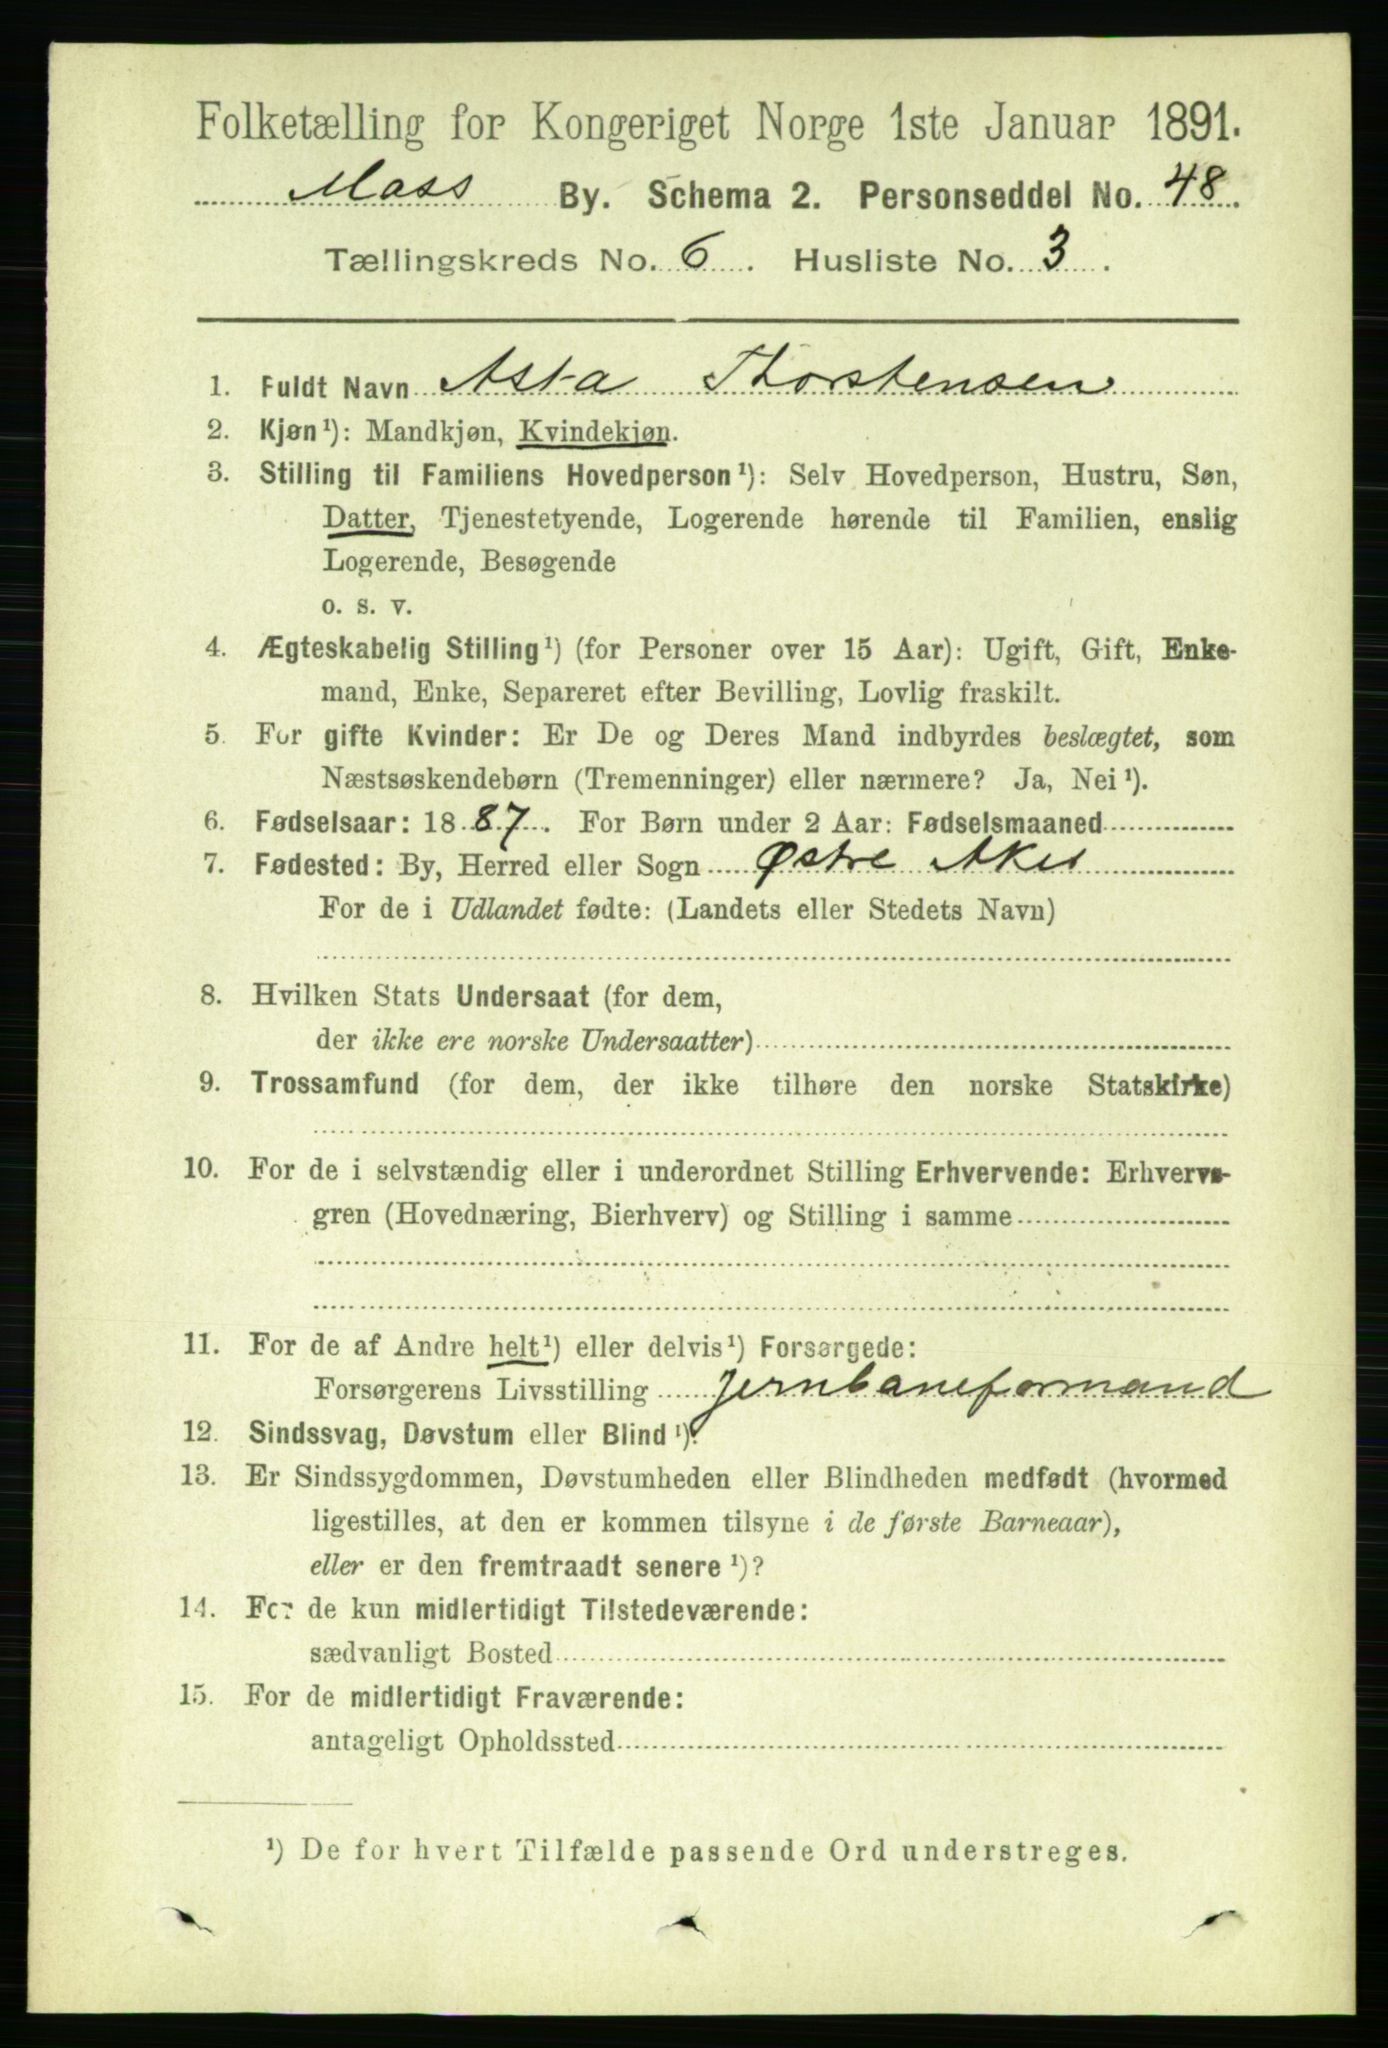 Folketælling for Kongeriget Norge 1ste Januar 1891.
Moss By. Schema 2. Personseddel No. 48.
Tællingskreds No. 6. Husliste No. 3.
1. Fuldt Navn Asta Thorstensen
2. Kjøn¹): Mandkjøn, Kvindekjøn.
3. Stilling til Familiens Hovedperson¹): Selv Hovedperson, Hustru, Søn,
Datter, Tjenestetyende, Logerende hørende til Familien, enslig
Logerende, Besøgende
o. s. v.
4. Ægteskabelig Stilling¹) (for Personer over 15 Aar): Ugift, Gift, Enke-
mand, Enke, Separeret efter Bevilling, Lovlig fraskilt.
5. For gifte Kvinder: Er De og Deres Mand indbyrdes beslægtet, som
Næstsøskendebørn (Tremenninger) eller nærmere? Ja, Nei¹).
6. Fødselsaar: 1887. For Børn under 2 Aar: Fødselsmaaned
7. Fødested: By, Herred eller Sogn Østre Aker
For de i Udlandet fødte: (Landets eller Stedets Navn)
8. Hvilken Stats Undersaat (for dem,
der ikke ere norske Undersaatter)
9. Trossamfund (for dem, der ikke tilhøre den norske Statskirke)
10. For de i selvstændig eller i underordnet Stilling Erhvervende: Erhvervs-
gren (Hovednæring, Bierhverv) og Stilling i samme
11. For de af Andre helt¹) eller delvis¹) Forsørgede:
Forsørgerens Livsstilling Jernbaneformand
12. Sindssvag, Døvstum eller Blind¹).
13. Er Sindssygdommen, Døvstumheden eller Blindheden medfødt (hvormed
ligestilles, at den er kommen tilsyne i de første Barneaar),
eller er den fremtraadt senere¹)?
14. For de kun midlertidigt Tilstedeværende:
sædvanligt Bosted
15. For de midlertidigt Fraværende:
antageligt Opholdssted
¹) De for hvert Tilfælde passende Ord understreges.